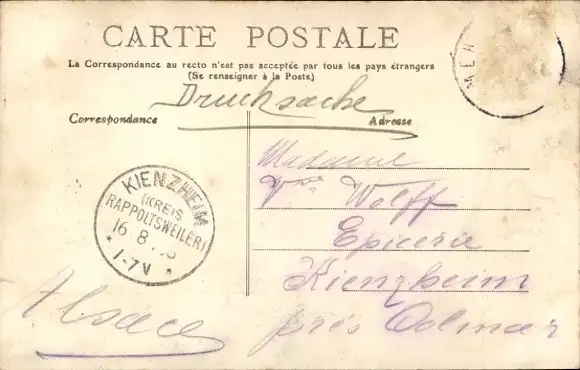 CARTE POSTALE
La Correspondance au recto n'est pas acceptée par tous les pays étrangers
(Se renseigner à la Poste)
Drucksache
Correspondance
Adresse
Madame
Vve Wolff
Epicerie
Kienzheim
près Colmar
Alsace
KIENZHEIM
(KREIS
RAPPOLTSWEILER)
16 8
* 1-7V *